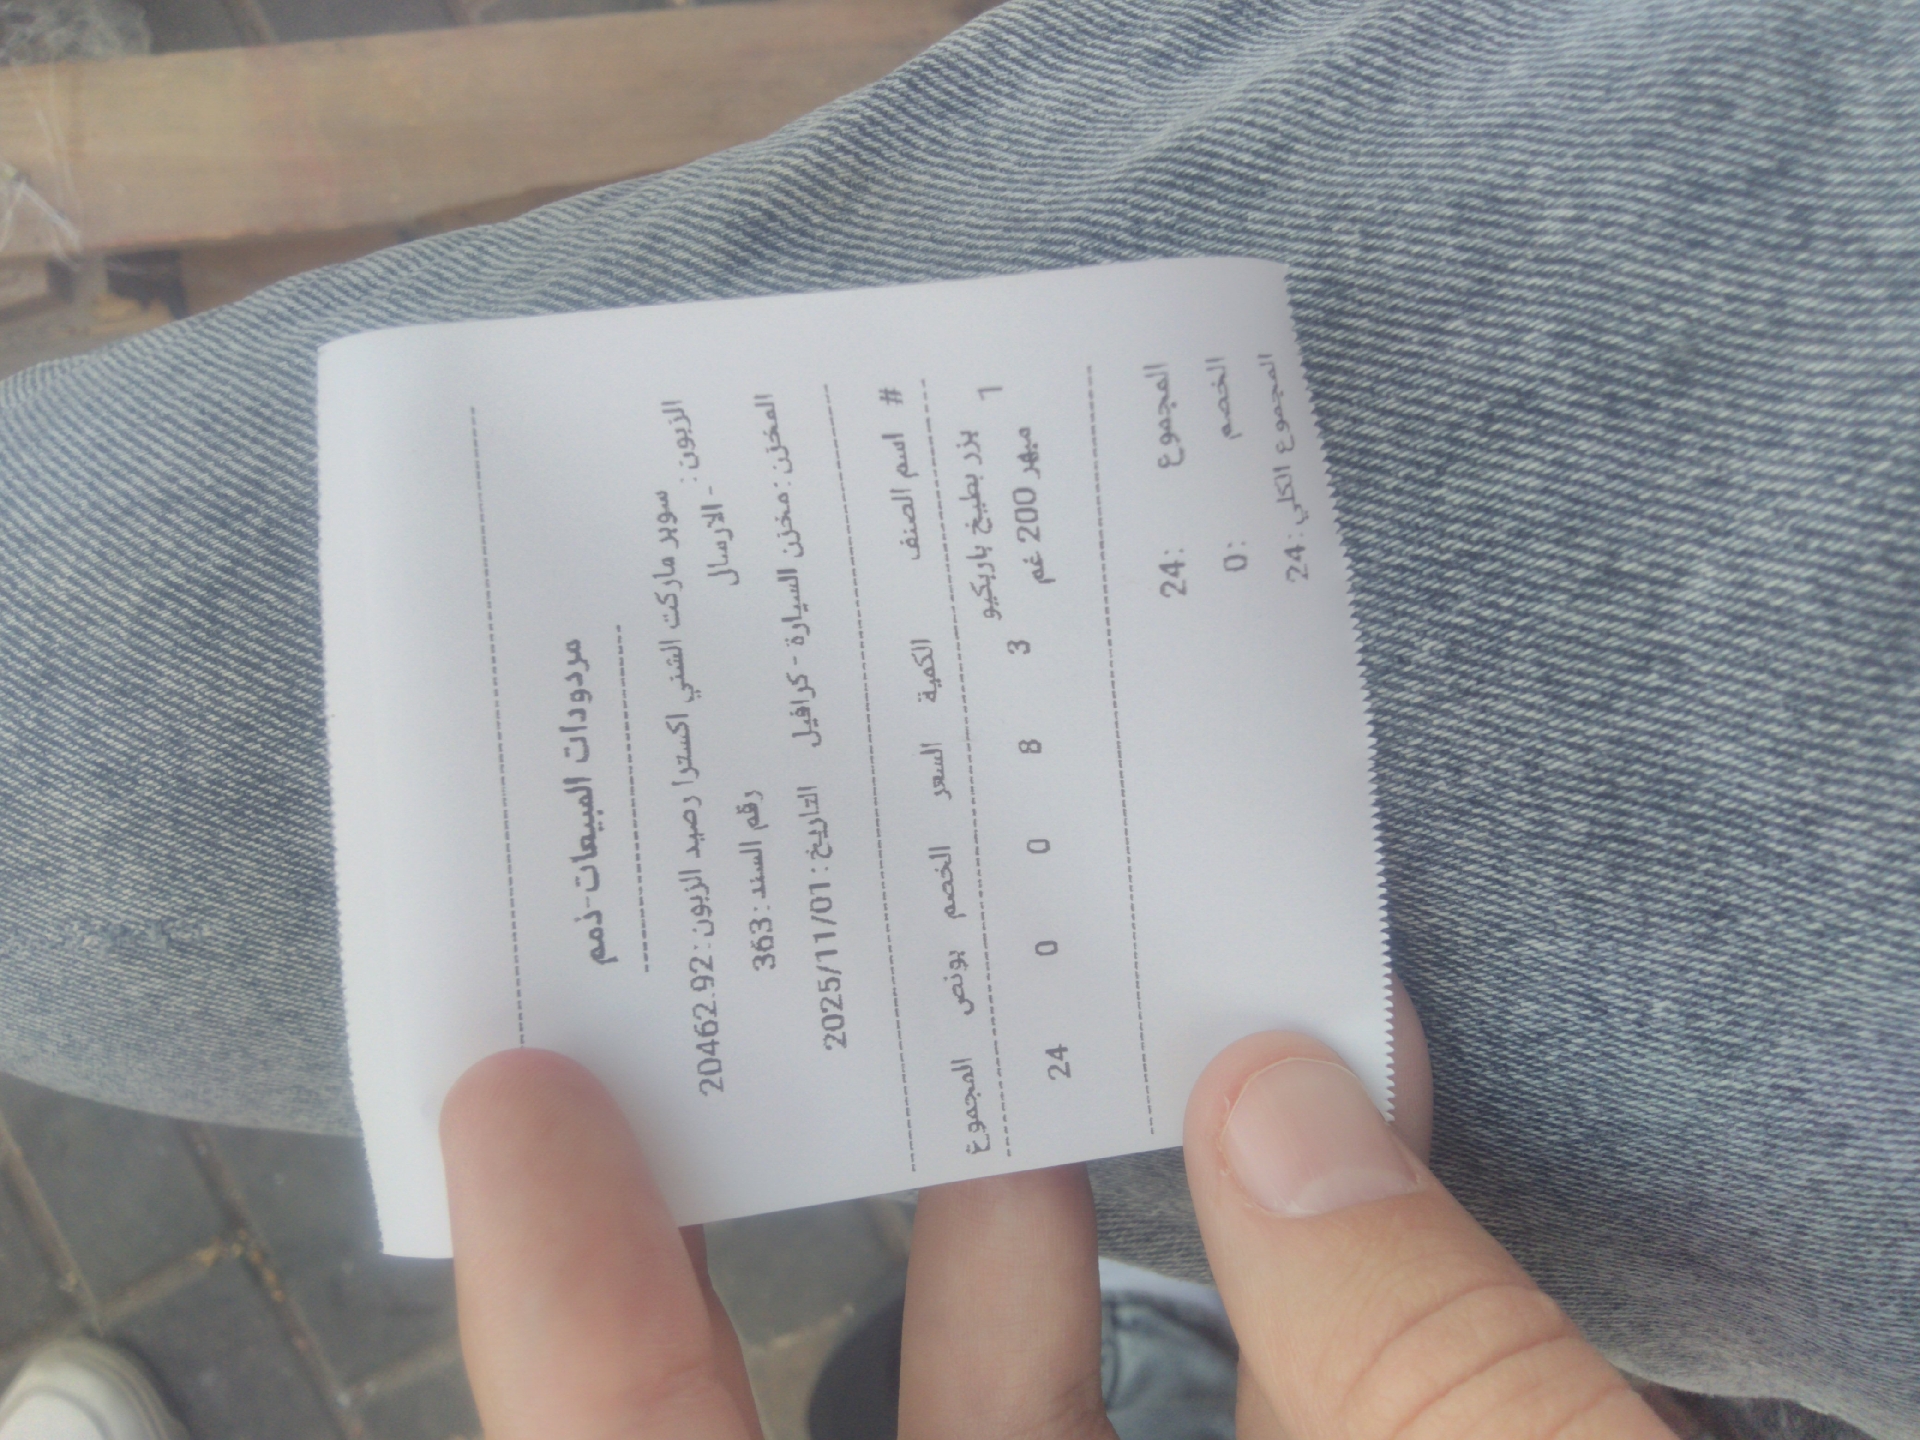 مردودات المبيعات-ذمم
الزبون: سوبر ماركت الشني اكسترا - الارسال رصيد الزبون: 20462.92
رقم السند: 363
المخزن: مخزن السيارة - كرافيل التاريخ: 2025/11/01
# اسم الصنف الكمية السعر الخصم بونص المجموع
1 بزر بطيخ باربكيو
مبهر 200 غم 3 8 0 0 24
المجموع :24
الخصم :0
المجموع الكلي :24